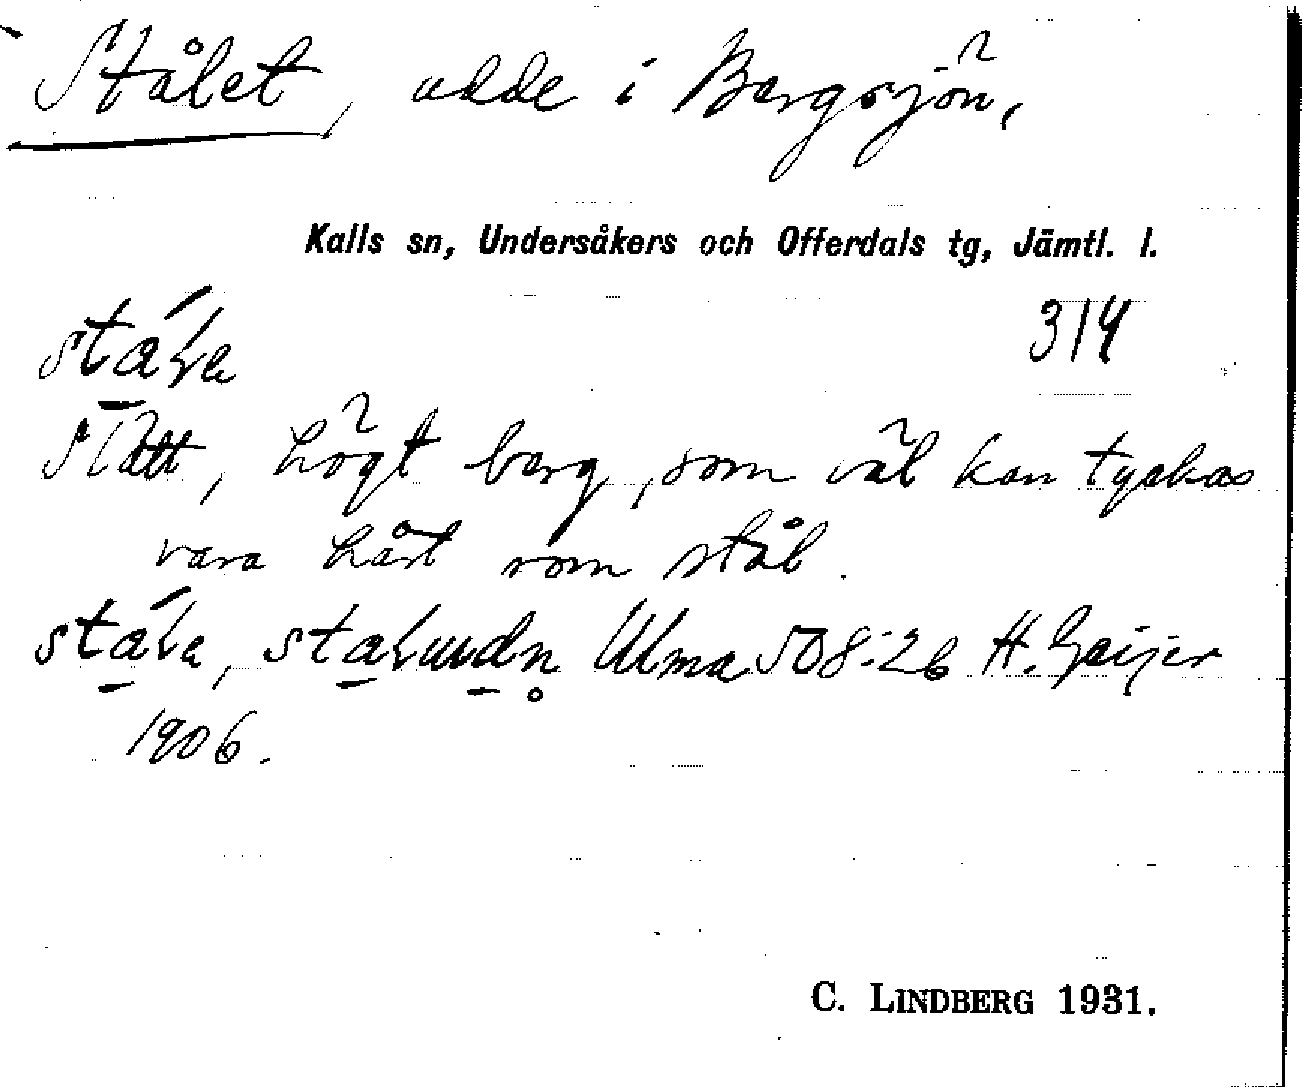 Stålet, udde i Bergsjön,
Kalls sn, Undersåkers och Offerdals tg, Jämtl. l.
314
Slätt, högt berg, som väl kan tyckas
vara hårt som stål.
Ulma 508:26 H. Geijer
1906.
C. LINDBERG 1931.